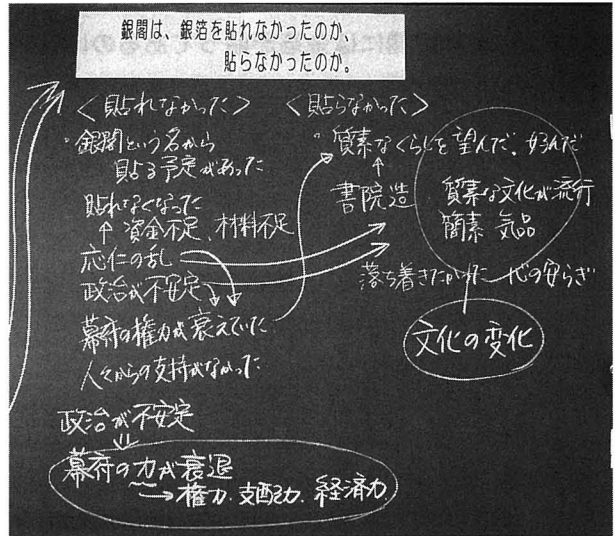 銀閣は、銀箔を貼れなかったのか、
貼らなかったのか。
<貼れなかった>
・銀閣という名から
貼る予定があった
貼れなくなった
↑資金不足、材料不足
応仁の乱
政治が不安定
幕府の権力が衰えていた
人々からの支持がなかった
政治が不安定
幕府の力が衰退
→権力、支配力、経済力
<貼らなかった>
・質素なくらしを望んだ、好んだ
↑
書院造
質素な文化が流行
簡素 気品
落ち着きたかった 心の安らぎ
文化の変化